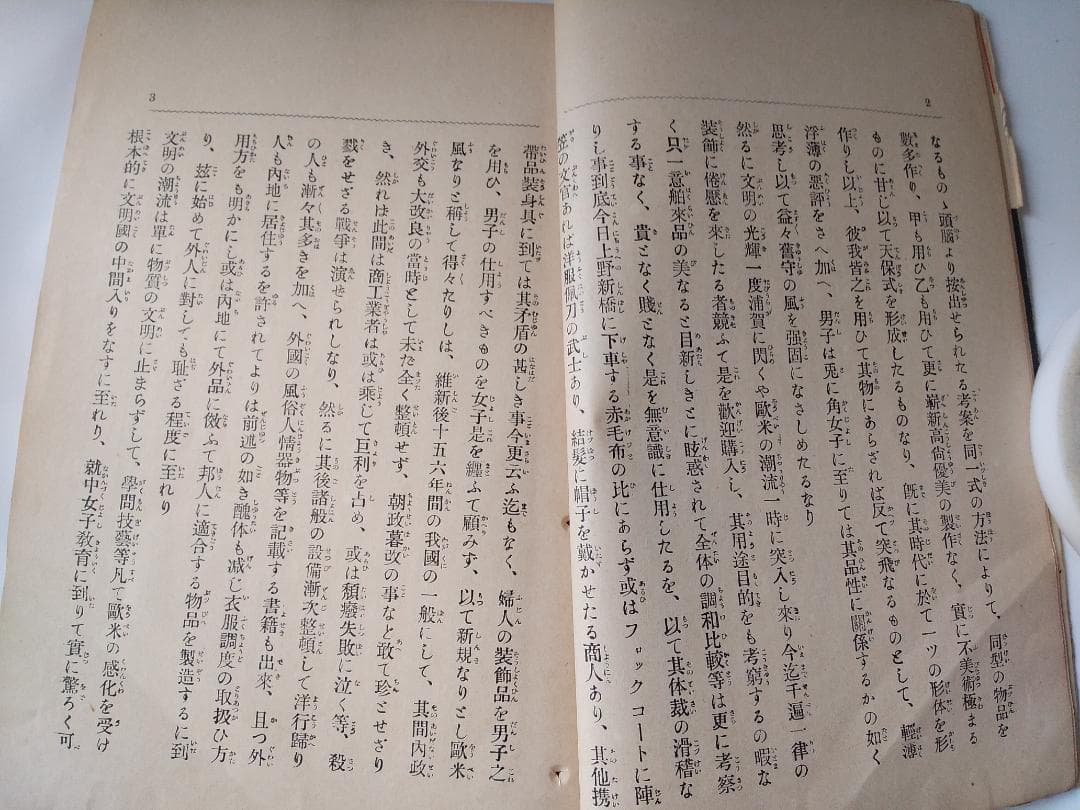 2
なるものゝ頭腦より按出せられたる考案を同一式の方法によりて、同型の物品を
數多作り、甲も用ひ乙も用ひて更に嶄新高尚優美の製作なく、實に不美術極まる
ものに甘じ以て天保式を形成したるものなり、旣に其時代に於て一ツの形体を形
作りし以上、彼我皆之を用ひて其物にあらざれば反て突飛なるものとして、輕薄
浮薄の惡評をさへ加へ、男子は兎に角女子に至りては其品性に關係するかの如く
思考し以て益々舊守の風を强固になさしめたるなり
然るに文明の光輝一度浦賀に閃くや歐米の潮流一時に突入し來り今迄千遍一律の
裝飾に倦懕を來したる者競ふて是を歡迎購入し、其用途目的をも考窮するの暇な
く只一意舶來品の美なると目新しきとに眩惑されて全体の調和比較等は更に考察
する事なく、貴となく賤となく是を無意識に仕用したるを、以て其体裁の滑稽な
りし事到底今日上野新橋に下車する赤毛布の比にあらず或はフロック コートに陣
笠の文官あれば洋服佩刀の武士あり、結髮に帽子を戴かせたる商人あり、其他携
3
帶品裝身具に到ては其矛盾の甚しき事今更云ふ迄もなく、婦人の裝飾品を男子之
を用ひ、男子の仕用すべきものを女子是を纏ふて顧みず、以て新規なりとし歐米
風なりと稱して得々たりしは、維新後十五六年間の我國の一般にして、其間內政
外交も大改良の當時として未た全く整頓せず、朝政暮改の事など敢て珍とせざり
き、然れは此間は商工業者は或は乘じて巨利を占め、或は頽廢失敗に泣く等、殺
戮をせざる戰爭は演せられしなり、然るに其後諸般の設備漸次整頓して洋行歸り
の人も漸々其多きを加へ、外國の風俗人情器物等を記載する書籍も出來、且つ外
人も內地に居住するを許されてよりは前述の如き醜体も减じ衣服調度の取扱ひ方
用方をも明かにし或は內地にて外品に倣ふて邦人に適合する物品を製造するに到
り、玆に始めて外人に對しても耻ざる程度に至れり
文明の潮流は單に物質の文明に止まらずして、學問技藝等凡て歐米の感化を受け
根本的に文明國の中間入りをなすに至れり、就中女子敎育に到りて實に驚ろく可